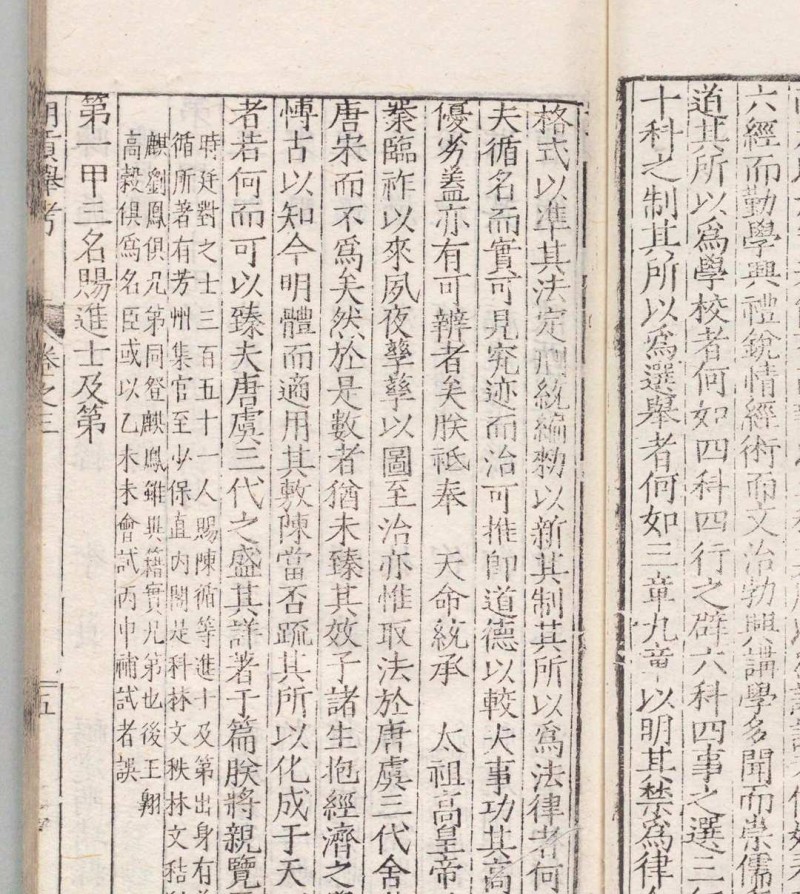 六經而勤學興禮銳情經術而文治勃興講學多聞而崇儒
道其所以爲學校者何如四科四行之辟六科四事之選三
十科之制其所以爲選舉者何如三章九章以明其禁爲律
格式以準其法定刑統編勑以新其制其所以爲法律者何
夫循名而實可見究迹而治可推卽道德以較夫事功其高
優劣蓋亦有可辨者矣朕祗奉 天命統承 太祖高皇帝
業臨祚以來夙夜孳孳以圖至治亦惟取法於唐虞三代舍
唐宋而不爲矣然於是數者猶未臻其效子諸生抱經濟之
博古以知今明體而適用其敷陳當否疏其所以化成于天
者若何而可以臻夫唐虞三代之盛其詳著于篇朕將親覽
時廷對之士三百五十一人賜陳循等進士及第出身有
循所著有芳州集官至少保直内閣是科林文秩林文秸
麒劉鳳俱兄第同登麒鳳錐與籍實兄第也後王翱
高榖俱爲名臣或以乙未未會試丙申補試者誤
第一甲三名賜進士及第
貢舉考 卷之三 五